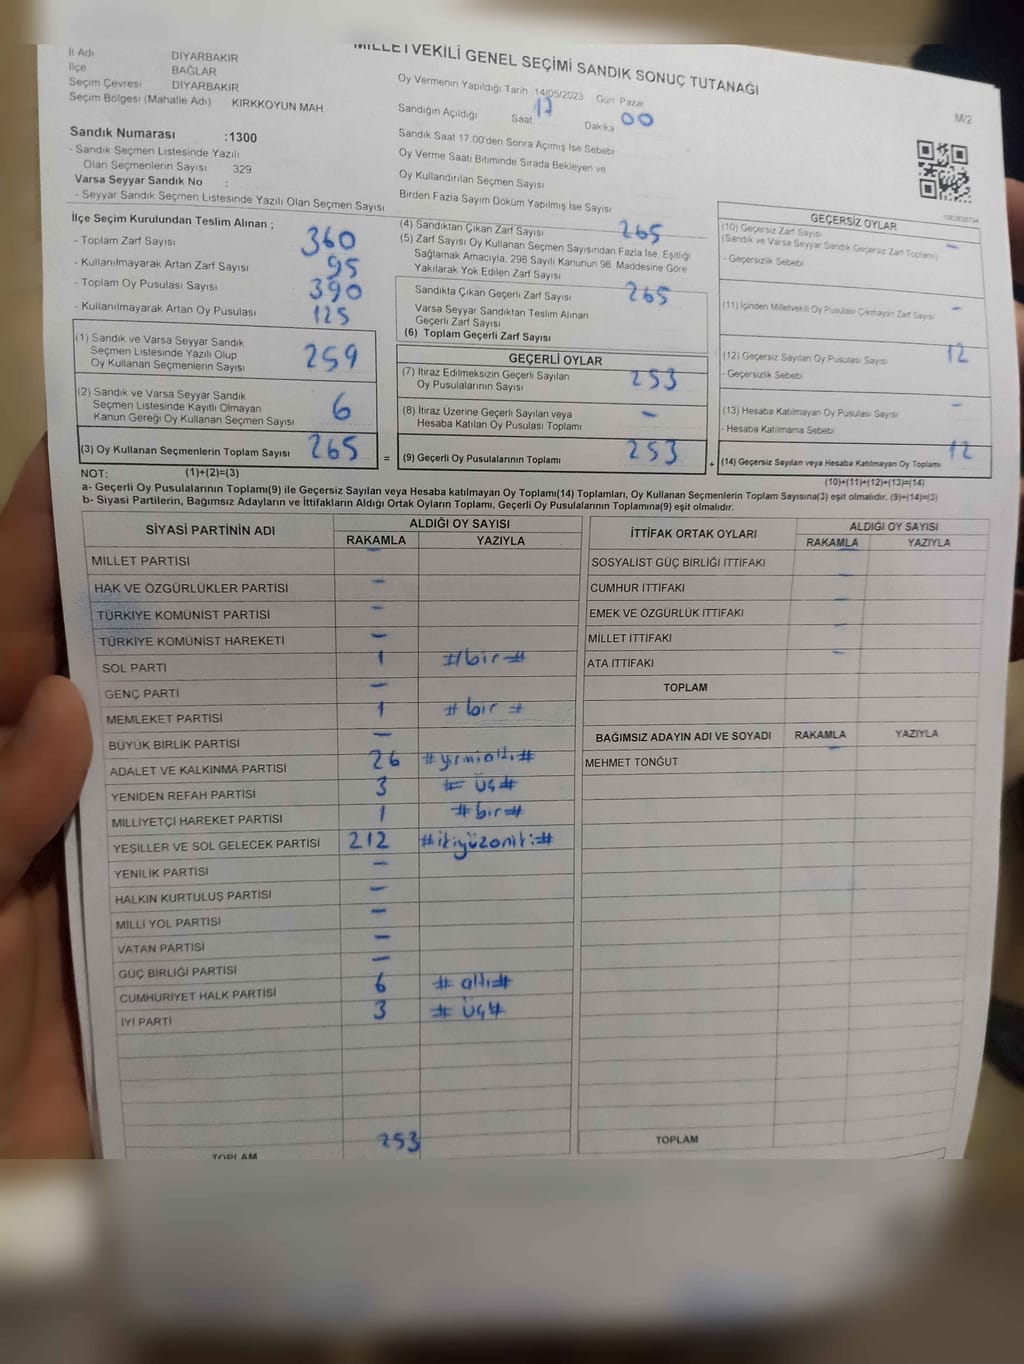 MİLLETVEKİLİ GENEL SEÇİMİ SANDIK SONUÇ TUTANAĞI
İl Adı DİYARBAKIR
İlçe BAĞLAR
Seçim Çevresi DİYARBAKIR
Seçim Bölgesi (Mahalle Adı) KIRKKOYUN MAH
Sandık Numarası :1300
- Sandık Seçmen Listesinde Yazılı
Olan Seçmenlerin Sayısı 329
Varsa Seyyar Sandık No :
- Seyyar Sandık Seçmen Listesinde Yazılı Olan Seçmen Sayısı
Oy Vermenin Yapıldığı Tarih 14/05/2023 Gün Pazar
Sandığın Açıldığı Saat 17 Dakika 00
Sandık Saat 17:00'den Sonra Açımış İse Sebebi
Oy Verme Saati Bitiminde Sırada Bekleyen ve
Oy Kullandırılan Seçmen Sayısı
Birden Fazla Sayım Döküm Yapılmış İse Sayısı
M/2
İlçe Seçim Kurulundan Teslim Alınan ;
- Toplam Zarf Sayısı 360
- Kullanılmayarak Artan Zarf Sayısı 95
- Toplam Oy Pusulası Sayısı 390
- Kullanılmayarak Artan Oy Pusulası 125
(1) Sandık ve Varsa Seyyar Sandık
Seçmen Listesinde Yazılı Olup
Oy Kullanan Seçmenlerin Sayısı 259
(2) Sandık ve Varsa Seyyar Sandık
Seçmen Listesinde Kayıtlı Olmayan
Kanun Gereği Oy Kullanan Seçmen Sayısı 6
(3) Oy Kullanan Seçmenlerin Toplam Sayısı 265 =
(4) Sandıktan Çıkan Zarf Sayısı 265
(5) Zarf Sayısı Oy Kullanan Seçmen Sayısından Fazla İse, Eşitliği
Sağlamak Amacıyla, 298 Sayılı Kanunun 98. Maddesine Göre
Yakılarak Yok Edilen Zarf Sayısı
Sandıkta Çıkan Geçerli Zarf Sayısı 265
Varsa Seyyar Sandıktan Teslim Alınan
Geçerli Zarf Sayısı
(6) Toplam Geçerli Zarf Sayısı
GEÇERLİ OYLAR
(7) İtiraz Edilmeksizin Geçerli Sayılan
Oy Pusulalarının Sayısı 253
(8) İtiraz Üzerine Geçerli Sayılan veya
Hesaba Katılan Oy Pusulası Toplamı -
(9) Geçerli Oy Pusulalarının Toplamı 253 +
GEÇERSİZ OYLAR
(10) Geçersiz Zarf Sayısı -
(Sandık ve Varsa Seyyar Sandık Geçersiz Zarf Toplamı)
- Geçersizlik Sebebi
(11) İçinden Milletvekili Oy Pusulası Çıkmayan Zarf Sayısı -
(12) Geçersiz Sayılan Oy Pusulası Sayısı 12
- Geçersizlik Sebebi
(13) Hesaba Katılmayan Oy Pusulası Sayısı -
- Hesaba Katılmama Sebebi
(14) Geçersiz Sayılan veya Hesaba Katılmayan Oy Toplamı 12
NOT: (1)+(2)=(3) (10)+(11)+(12)+(13)=(14)
a- Geçerli Oy Pusulalarının Toplamı(9) ile Geçersiz Sayılan veya Hesaba katılmayan Oy Toplamı(14) Toplamları, Oy Kullanan Seçmenlerin Toplam Sayısına(3) eşit olmalıdır. (9)+(14)=(3)
b- Siyasi Partilerin, Bağımsız Adayların ve İttifakların Aldığı Ortak Oyların Toplamı, Geçerli Oy Pusulalarının Toplamına(9) eşit olmalıdır.
SİYASİ PARTİNİN ADI ALDIĞI OY SAYISI
RAKAMLA YAZIYLA
MİLLET PARTİSİ -
HAK VE ÖZGÜRLÜKLER PARTİSİ -
TÜRKİYE KOMÜNİST PARTİSİ -
TÜRKİYE KOMÜNİST HAREKETİ -
SOL PARTİ 1 #bir#
GENÇ PARTİ -
MEMLEKET PARTİSİ 1 #bir#
BÜYÜK BİRLİK PARTİSİ -
ADALET VE KALKINMA PARTİSİ 26 #yirmialtı#
YENİDEN REFAH PARTİSİ 3 #üç#
MİLLİYETÇİ HAREKET PARTİSİ 1 #bir#
YEŞİLLER VE SOL GELECEK PARTİSİ 212 #ikiyüzoniki#
YENİLİK PARTİSİ -
HALKIN KURTULUŞ PARTİSİ -
MİLLİ YOL PARTİSİ -
VATAN PARTİSİ -
GÜÇ BİRLİĞİ PARTİSİ -
CUMHURİYET HALK PARTİSİ 6 #altı#
İYİ PARTİ 3 #üç#
TOPLAM 253
İTTİFAK ORTAK OYLARI ALDIĞI OY SAYISI
RAKAMLA YAZIYLA
SOSYALİST GÜÇ BİRLİĞİ İTTİFAKI -
CUMHUR İTTİFAKI -
EMEK VE ÖZGÜRLÜK İTTİFAKI -
MİLLET İTTİFAKI -
ATA İTTİFAKI -
TOPLAM
BAĞIMSIZ ADAYIN ADI VE SOYADI RAKAMLA YAZIYLA
MEHMET TONĞUT -
TOPLAM